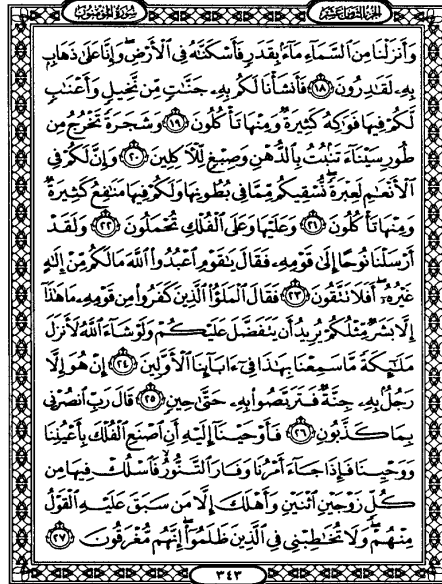 سُورَةُ المُؤْمِنُونَ
الجُزْءُ الثَّامِنَ عَشَرَ
وَأَنزَلْنَا مِنَ السَّمَآءِ مَآءًۢ بِقَدَرٍ فَأَسْكَنَّٰهُ فِى ٱلْأَرْضِ ۖ وَإِنَّا عَلَىٰ ذَهَابٍۭ
بِهِۦ لَقَٰدِرُونَ ﴿١٨﴾ فَأَنشَأْنَا لَكُم بِهِۦ جَنَّٰتٍ مِّن نَّخِيلٍ وَأَعْنَٰبٍ
لَّكُمْ فِيهَا فَوَٰكِهُ كَثِيرَةٌ وَمِنْهَا تَأْكُلُونَ ﴿١٩﴾ وَشَجَرَةً تَخْرُجُ مِن
طُورِ سَيْنَآءَ تَنۢبُتُ بِٱلدُّهْنِ وَصِبْغٍ لِّلْـَٔاكِلِينَ ﴿٢٠﴾ وَإِنَّ لَكُمْ فِى
ٱلْأَنْعَٰمِ لَعِبْرَةً ۖ نُّسْقِيكُم مِّمَّا فِى بُطُونِهَا وَلَكُمْ فِيهَا مَنَٰفِعُ كَثِيرَةٌ
وَمِنْهَا تَأْكُلُونَ ﴿٢١﴾ وَعَلَيْهَا وَعَلَى ٱلْفُلْكِ تُحْمَلُونَ ﴿٢٢﴾ وَلَقَدْ
أَرْسَلْنَا نُوحًا إِلَىٰ قَوْمِهِۦ فَقَالَ يَٰقَوْمِ ٱعْبُدُوا۟ ٱللَّهَ مَا لَكُم مِّنْ إِلَٰهٍ
غَيْرُهُۥٓ ۖ أَفَلَا تَتَّقُونَ ﴿٢٣﴾ فَقَالَ ٱلْمَلَؤُا۟ ٱلَّذِينَ كَفَرُوا۟ مِن قَوْمِهِۦ مَا هَٰذَآ
إِلَّا بَشَرٌ مِّثْلُكُمْ يُرِيدُ أَن يَتَفَضَّلَ عَلَيْكُمْ وَلَوْ شَآءَ ٱللَّهُ لَأَنزَلَ
مَلَٰٓئِكَةً مَّا سَمِعْنَا بِهَٰذَا فِىٓ ءَابَآئِنَا ٱلْأَوَّلِينَ ﴿٢٤﴾ إِنْ هُوَ إِلَّا
رَجُلٌۢ بِهِۦ جِنَّةٌ فَتَرَبَّصُوا۟ بِهِۦ حَتَّىٰ حِينٍ ﴿٢٥﴾ قَالَ رَبِّ ٱنصُرْنِى
بِمَا كَذَّبُونِ ﴿٢٦﴾ فَأَوْحَيْنَآ إِلَيْهِ أَنِ ٱصْنَعِ ٱلْفُلْكَ بِأَعْيُنِنَا
وَوَحْيِنَا فَإِذَا جَآءَ أَمْرُنَا وَفَارَ ٱلتَّنُّورُ ۙ فَٱسْلُكْ فِيهَا مِن
كُلٍّ زَوْجَيْنِ ٱثْنَيْنِ وَأَهْلَكَ إِلَّا مَن سَبَقَ عَلَيْهِ ٱلْقَوْلُ
مِنْهُمْ ۖ وَلَا تُخَٰطِبْنِى فِى ٱلَّذِينَ ظَلَمُوٓا۟ ۖ إِنَّهُم مُّغْرَقُونَ ﴿٢٧﴾
٣٤٣